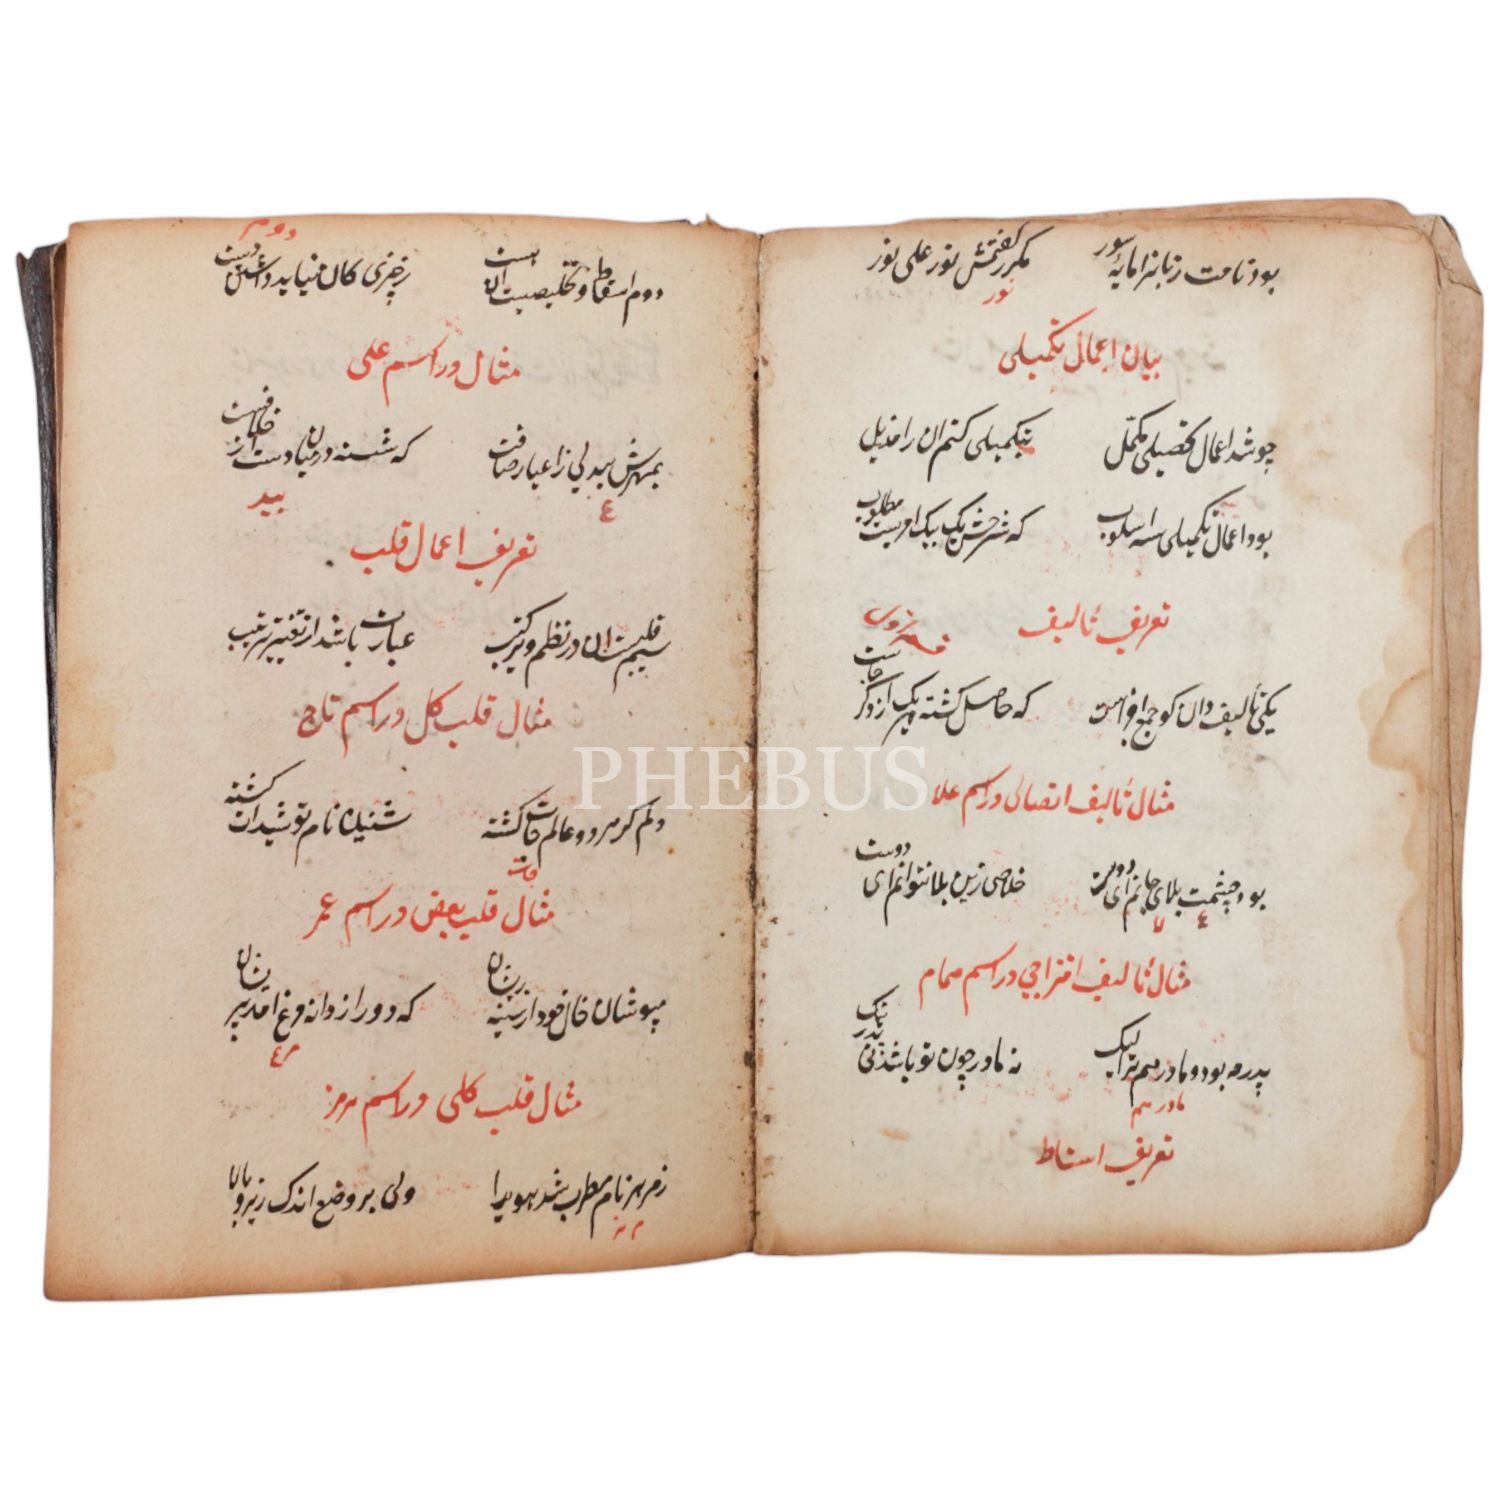 بود نامت زبانرا مایهٔ سور مکرر گفتمش نور علی نور
نور
بیان اعمال تکمیلی
چو شد اعمال تحصیلی مکمل بتکمیلی کنم ان را مذیل
بود اعمال تکمیلی سه اسلوب که شرحش یک بیک امریست مطلوب
تعریف تالیف
یکی تالیف دان کو جمع اجزاست که حاصل کشته هر یک از دکر خاست
مثال تالیف اتصالی در اسم علا
بود چشمت بلای جانم ای دوست خلاصی زین بلا نتوانم ای دوست
ع لا
مثال تالیف امتزاجی در اسم همام
پدر مه بود و مادر هم ترا لیک نه مادر چون تو باشد نی پدر نیک
مادر هم
تعریف اسقاط
دوم
دوم اسقاط و تخلیصیست ان هست ز چیزی کان نمیاید
مثال در اسم علی
بمهرش بیدلی زاغیار صافت که شسته در میان دست از
ع
بید
تعریف اعمال قلب
سیم قلبست ان در نظم و ترکیب عبارت باشد از تغییر ترتیب
مثال قلب کل در اسم تاج
دلم کز هر دو عالم خات کشته شنیده نام تو شیدات کشته
جات
مثال قلب بعض در اسم عمر
مپوشان خال خود از سینه ریشان که دور از دانه مرغ امد پریشان
مثال قلب کلی در اسم هرمز
زمر هز نام مطرب شد هویدا ولی بر وضع اندک زیر و بالا